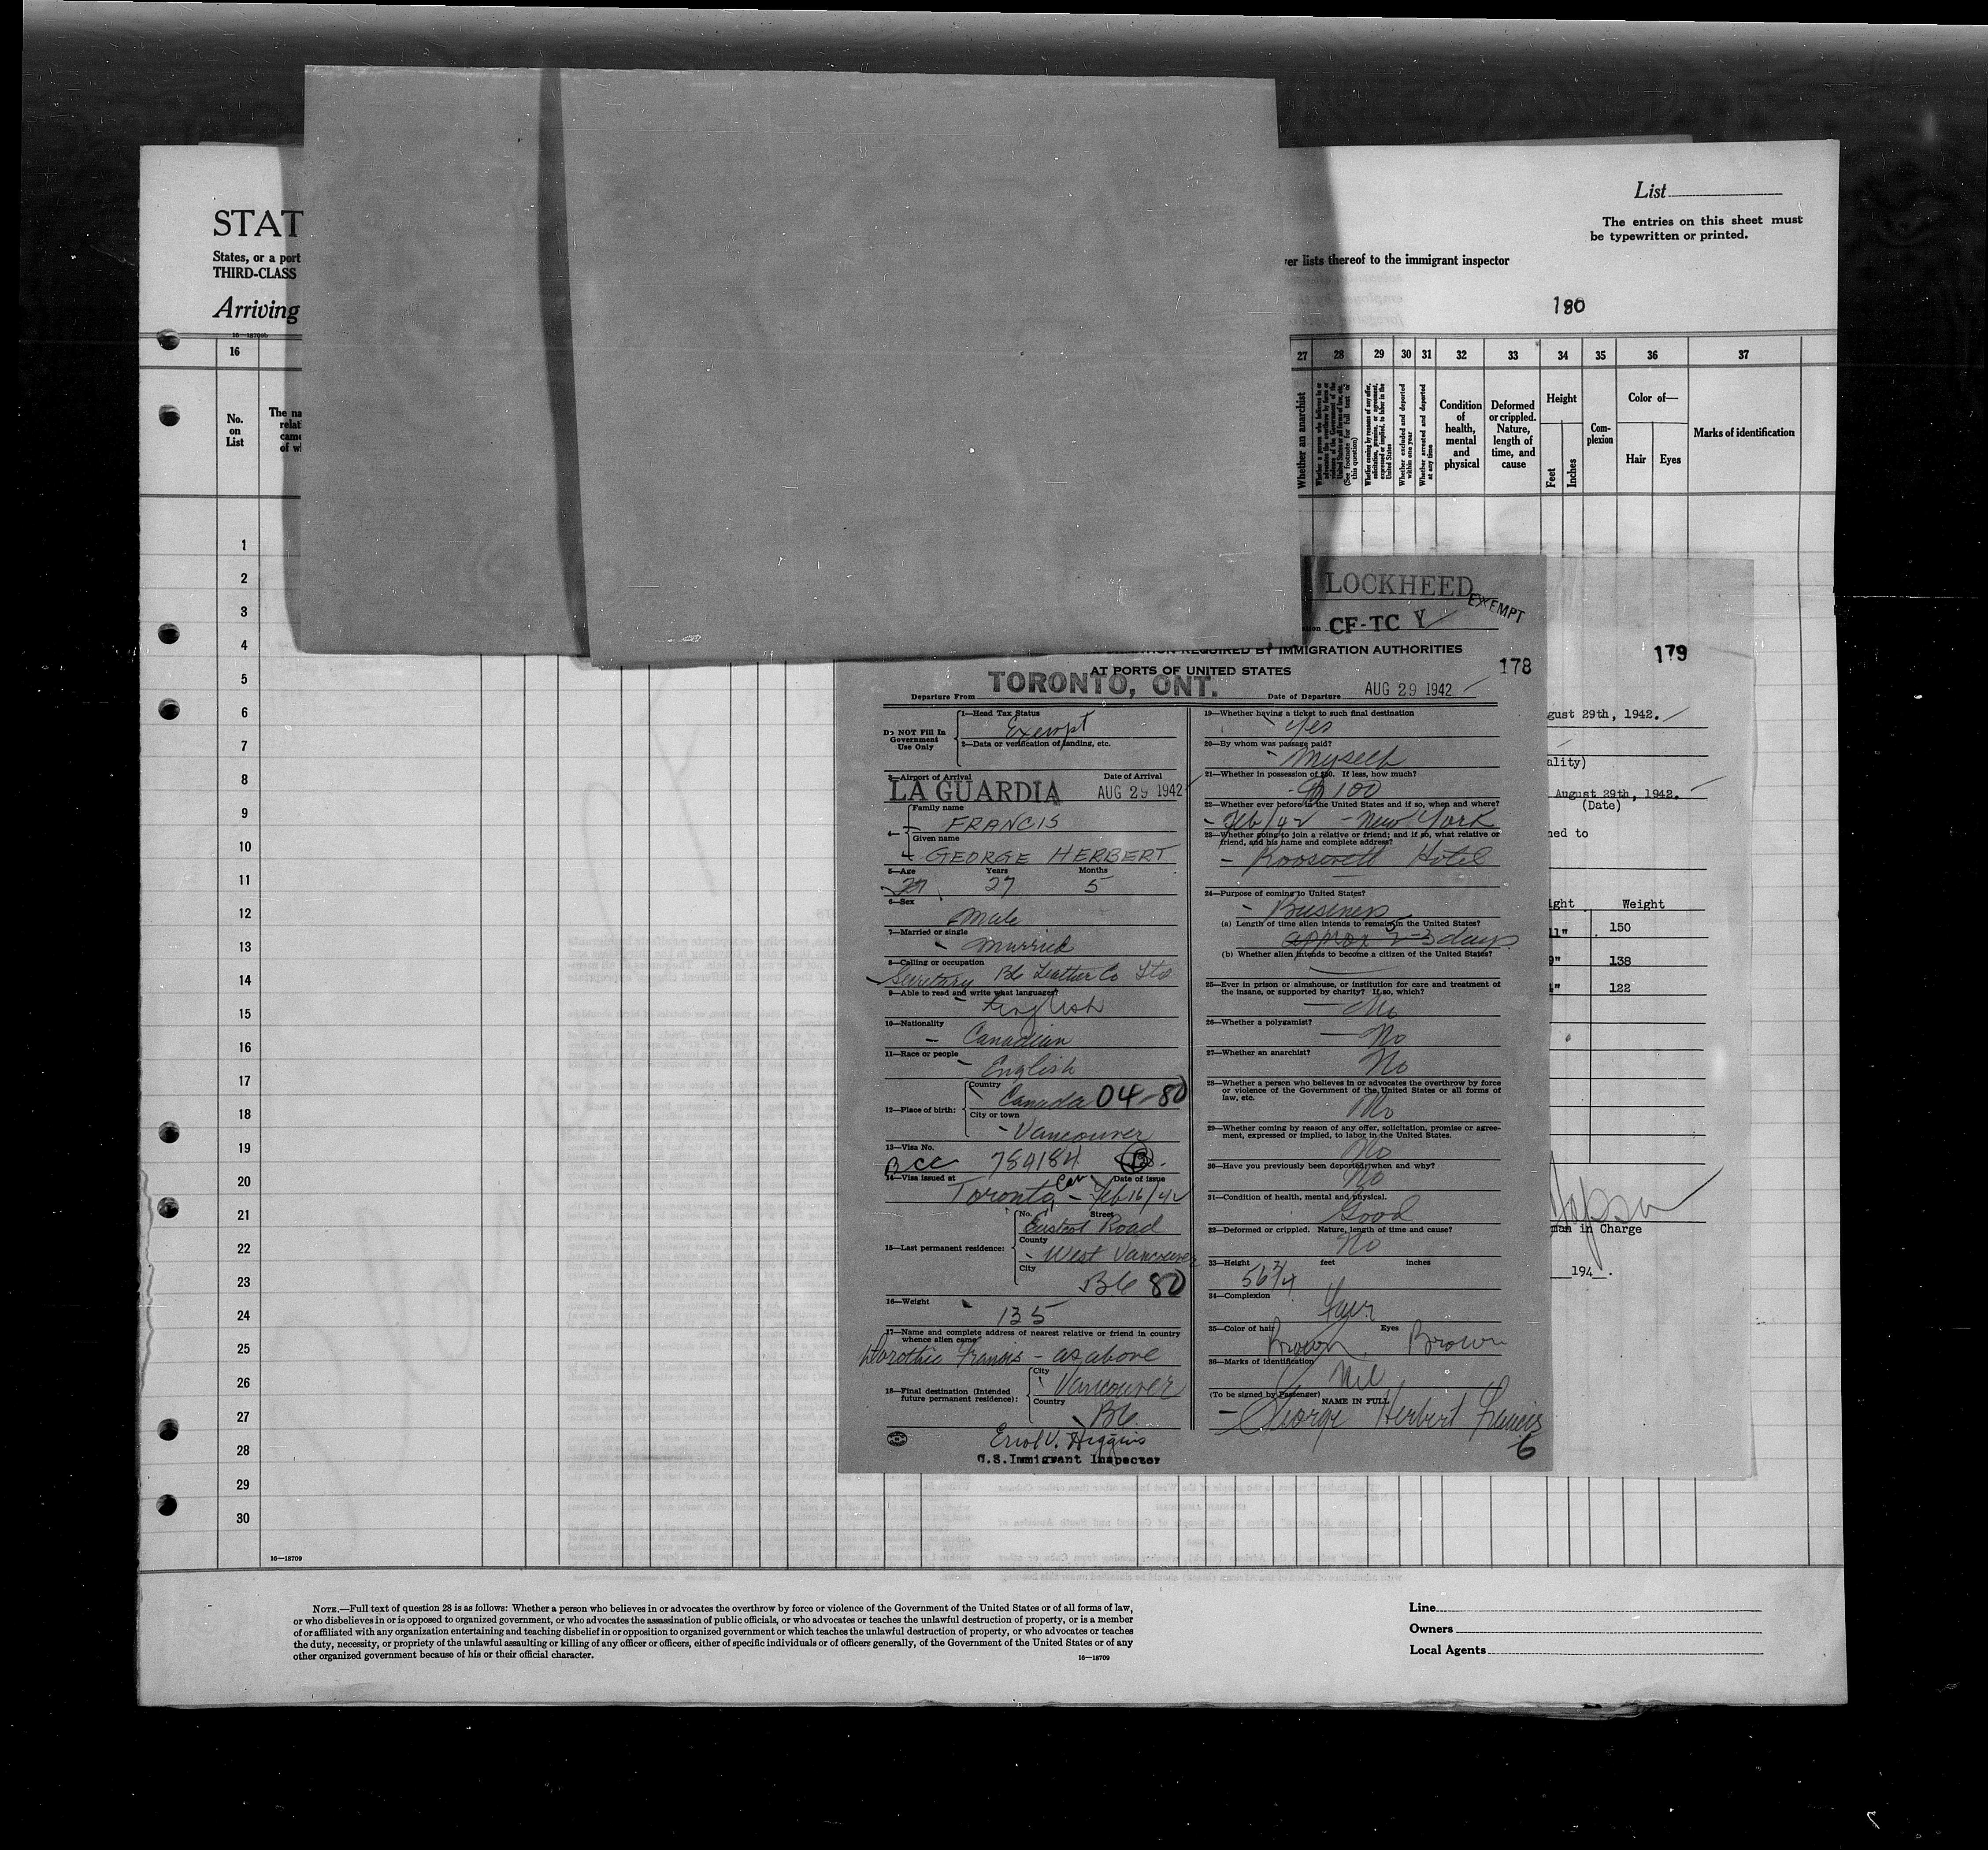 List
The entries on this sheet must
be typewritten or printed.
STAT
States, or a port
THIRD-CLASS
er lists thereof to the immigrant inspector
Arriving
180
16—18709b
16
27 28 29 30 31 32 33 34 35 36 37
No.
on
List
The na
relat
came
of w
Whether an anarchist
Whether a person who believes in or
advocates the overthrow by force or
violence of the Government of the
United States or all forms of law, etc.
(See footnote for full text of
this question)
Whether coming by reasons of any offer,
solicitation, promise, or agreement,
expressed or implied, to labor in the
United States
Whether excluded and deported
within one year
Whether arrested and deported
at any time
Condition
of
health,
mental
and
physical
Deformed
or crippled.
Nature,
length of
time, and
cause
Height
Feet
Inches
Com-
plexion
Color of—
Hair
Eyes
Marks of identification
1
2
3
4
5
6
7
8
9
10
11
12
13
14
15
16
17
18
19
20
21
22
23
24
25
26
27
28
29
30
16—18709
LOCKHEED
EXEMPT
CF-TC Y
REQUIRED BY IMMIGRATION AUTHORITIES
AT PORTS OF UNITED STATES
178
Departure From TORONTO, ONT. Date of Departure AUG 29 1942
Do NOT Fill In
Government
Use Only
1—Head Tax Status
Exempt
2—Data or verification of landing, etc.
3—Airport of Arrival Date of Arrival
LA GUARDIA AUG 29 1942
4—
Family name
FRANCIS
Given name
GEORGE HERBERT
5—Age Years Months
27 5
6—Sex
Male
7—Married or single
Married
8—Calling or occupation
Secretary BC Leather Co Ltd
9—Able to read and write what languages?
English
10—Nationality
Canadian
11—Race or people
English
12—Place of birth:
Country
Canada 04-80
City or town
Vancouver
13—Visa No.
BCC 789184
14—Visa issued at Date of issue
Toronto Can - Feb 16/42
15—Last permanent residence:
No. Street
Eastcot Road
County
West Vancouver
City
BC 80
16—Weight
135
17—Name and complete address of nearest relative or friend in country
whence alien came
Dorothie Francis - as above
18—Final destination (Intended
future permanent residence):
City
Vancouver
Country
BC
Errol V. Higgins
U.S. Immigrant Inspector
19—Whether having a ticket to such final destination
Yes
20—By whom was passage paid?
Myself
21—Whether in possession of $50. If less, how much?
$100
22—Whether ever before in the United States and if so, when and where?
- Feb/42 - New York
23—Whether going to join a relative or friend; and if so, what relative or
friend, and his name and complete address?
- Roosevelt Hotel
24—Purpose of coming to United States?
- Business
(a) Length of time alien intends to remain in the United States?
approx 2-3 days
(b) Whether alien intends to become a citizen of the United States?
25—Ever in prison or almshouse, or institution for care and treatment of
the insane, or supported by charity? If so, which?
No
26—Whether a polygamist?
No
27—Whether an anarchist?
No
28—Whether a person who believes in or advocates the overthrow by force
or violence of the Government of the United States or all forms of
law, etc.
No
29—Whether coming by reason of any offer, solicitation, promise or agree-
ment, expressed or implied, to labor in the United States.
No
30—Have you previously been deported; when and why?
No
31—Condition of health, mental and physical.
Good
32—Deformed or crippled. Nature, length of time and cause?
No
33—Height feet inches
34—Complexion
Fair
35—Color of hair Eyes
Brown Brown
36—Marks of identification
Nil
(To be signed by Passenger)
NAME IN FULL
George Herbert Francis
6
179
gust 29th, 1942.
ality)
August 29th, 1942.
(Date)
ned to
ight Weight
11" 150
9" 138
4" 122
man in Charge
194 .
NOTE.—Full text of question 28 is as follows: Whether a person who believes in or advocates the overthrow by force or violence of the Government of the United States or of all forms of law,
or who disbelieves in or is opposed to organized government, or who advocates the assassination of public officials, or who advocates or teaches the unlawful destruction of property, or is a member
of or affiliated with any organization entertaining and teaching disbelief in or opposition to organized government or which teaches the unlawful destruction of property, or who advocates or teaches
the duty, necessity, or propriety of the unlawful assaulting or killing of any officer or officers, either of specific individuals or of officers generally, of the Government of the United States or of any
other organized government because of his or their official character.
16—18709
Line
Owners
Local Agents